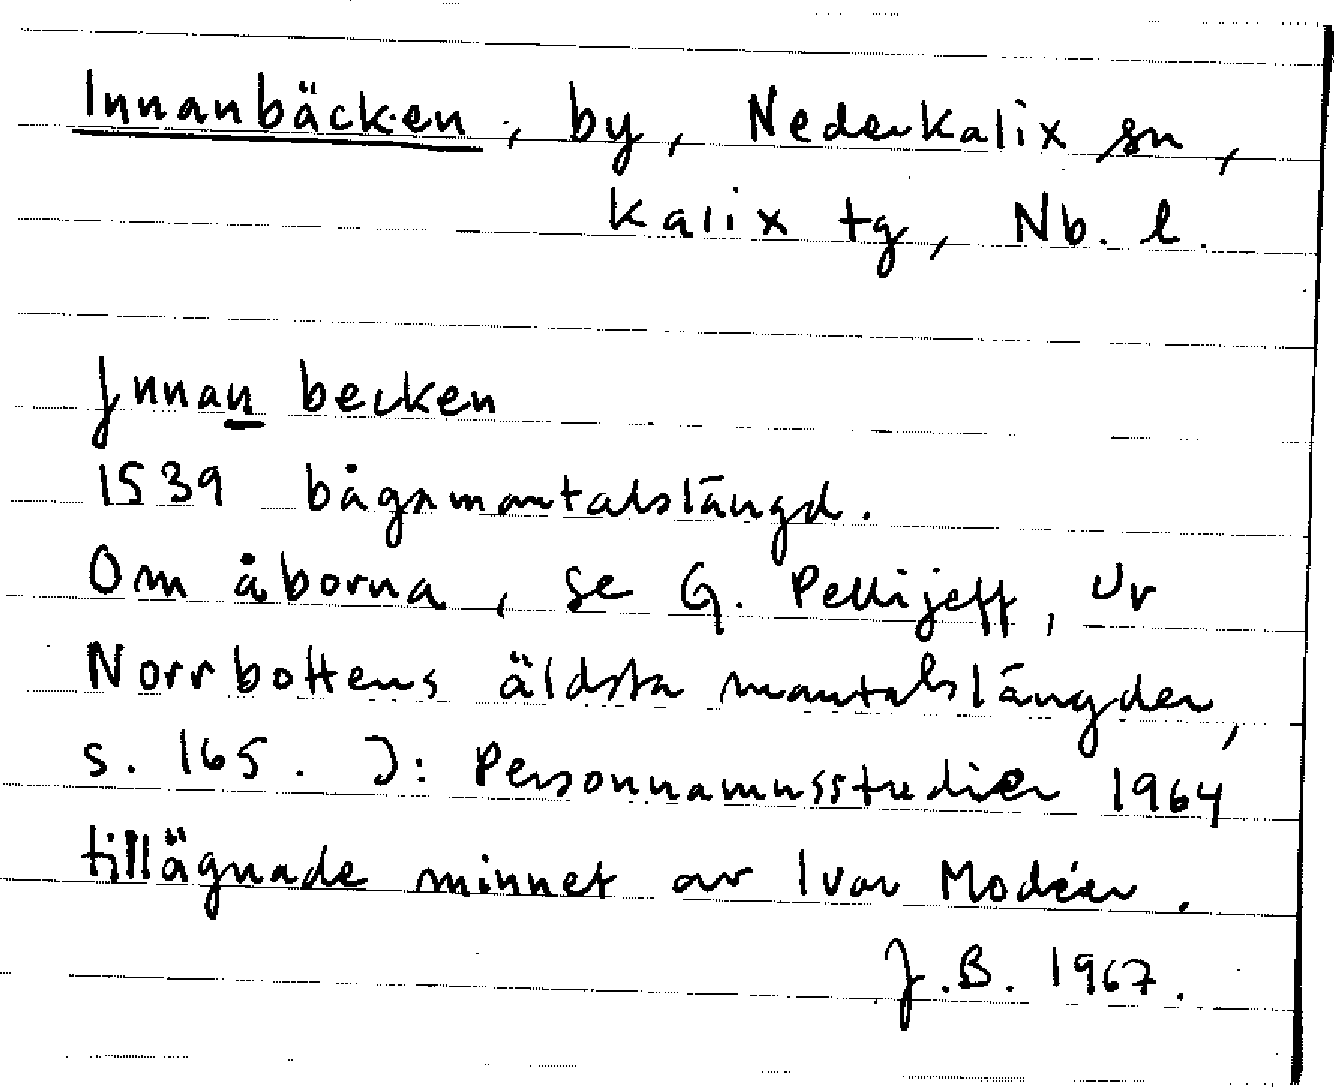 Innanbäcken, by, Nederkalix sn,
Kalix tg, Nb. l.
Jnnan becken
1539 bågamantalslängd.
Om åborna, se G. Pellijeff, Ur
Norrbottens äldsta mantalslängder,
s. 165. J: Personnamnsstudier 1964
tillägnade minnet av Ivar Modéer.
J.B. 1967.